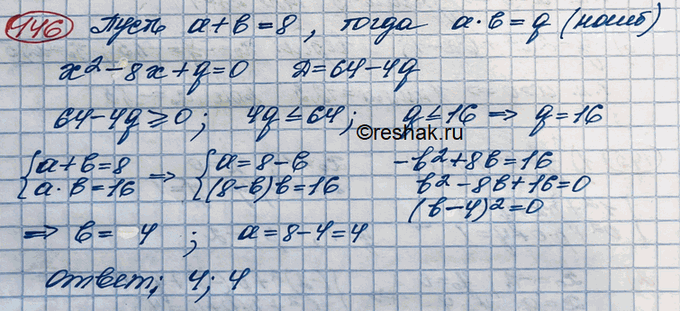 146 Пусть a+b=8, тогда a·b=q (наиб)
x²-8x+q=0 D=64-4q
64-4q≥0; 4q≤64; q≤16 ⇒ q=16
©reshak.ru
{a+b=8 {a=8-b -b²+8b=16
{a·b=16 ⇒ {(8-b)b=16 b²-8b+16=0
(b-4)²=0
⇒ b= 4 ; a=8-4=4
Ответ; 4; 4